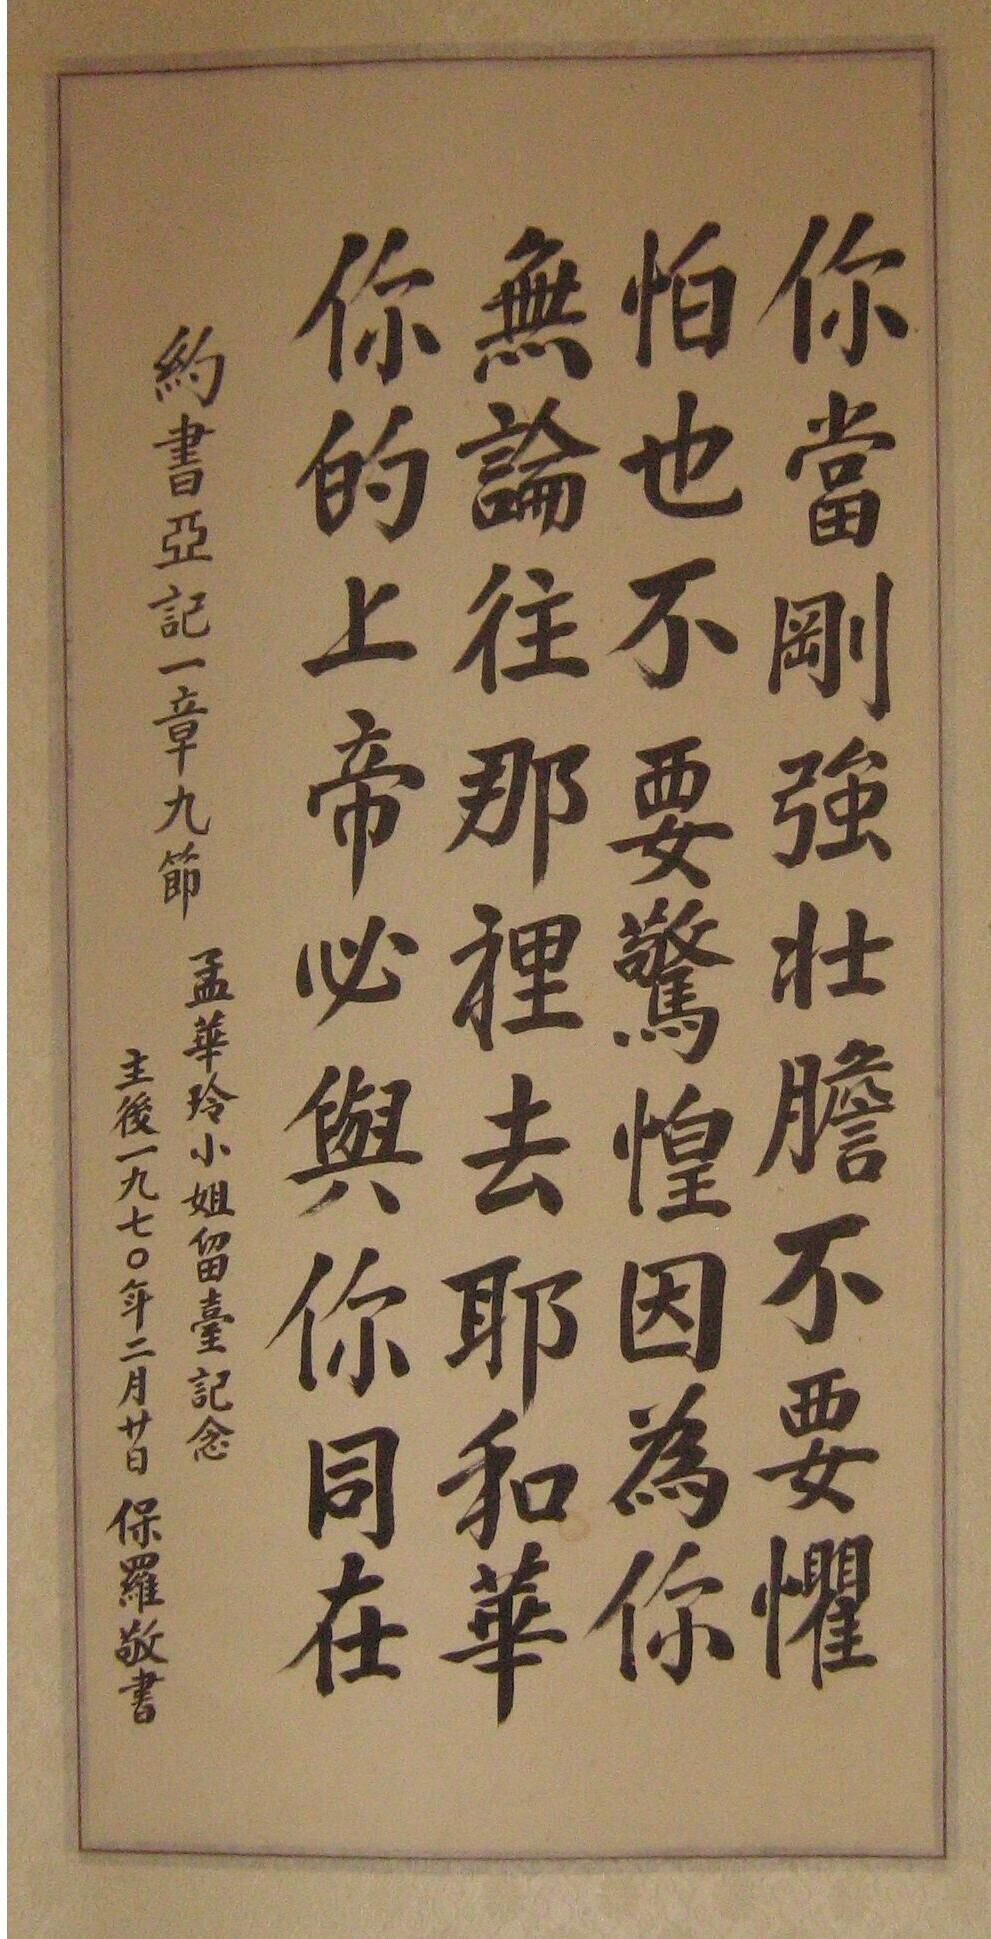 你當剛強壯膽不要懼
怕也不要驚惶因為你
無論往那裡去耶和華
你的上帝必與你同在
約書亞記一章九節
孟華玲小姐留臺記念
主後一九七〇年二月廿日 保羅敬書